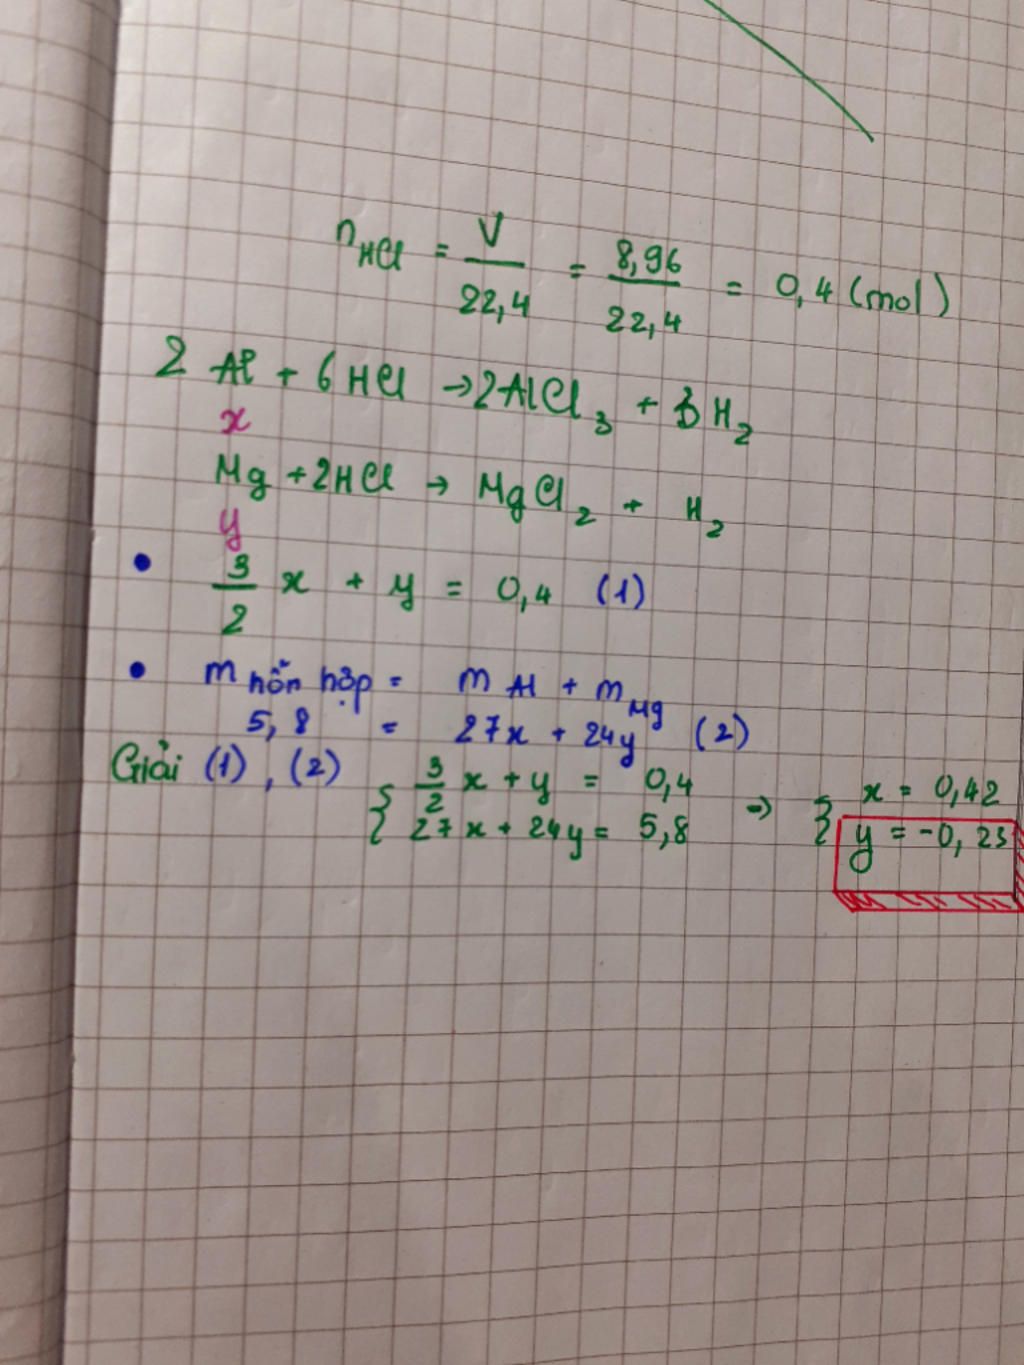 nHCl = V/22,4 = 8,96/22,4 = 0,4 (mol)
2 Al + 6 HCl → 2AlCl3 + 3 H2
x
Mg + 2HCl → MgCl2 + H2
y
• 3/2 x + y = 0,4 (1)
• m hỗn hợp = m Al + m Mg
5,8 = 27x + 24y (2)
Giải (1), (2)
{ 3/2 x + y = 0,4 → { x = 0,42
27x + 24y = 5,8 y = -0,23